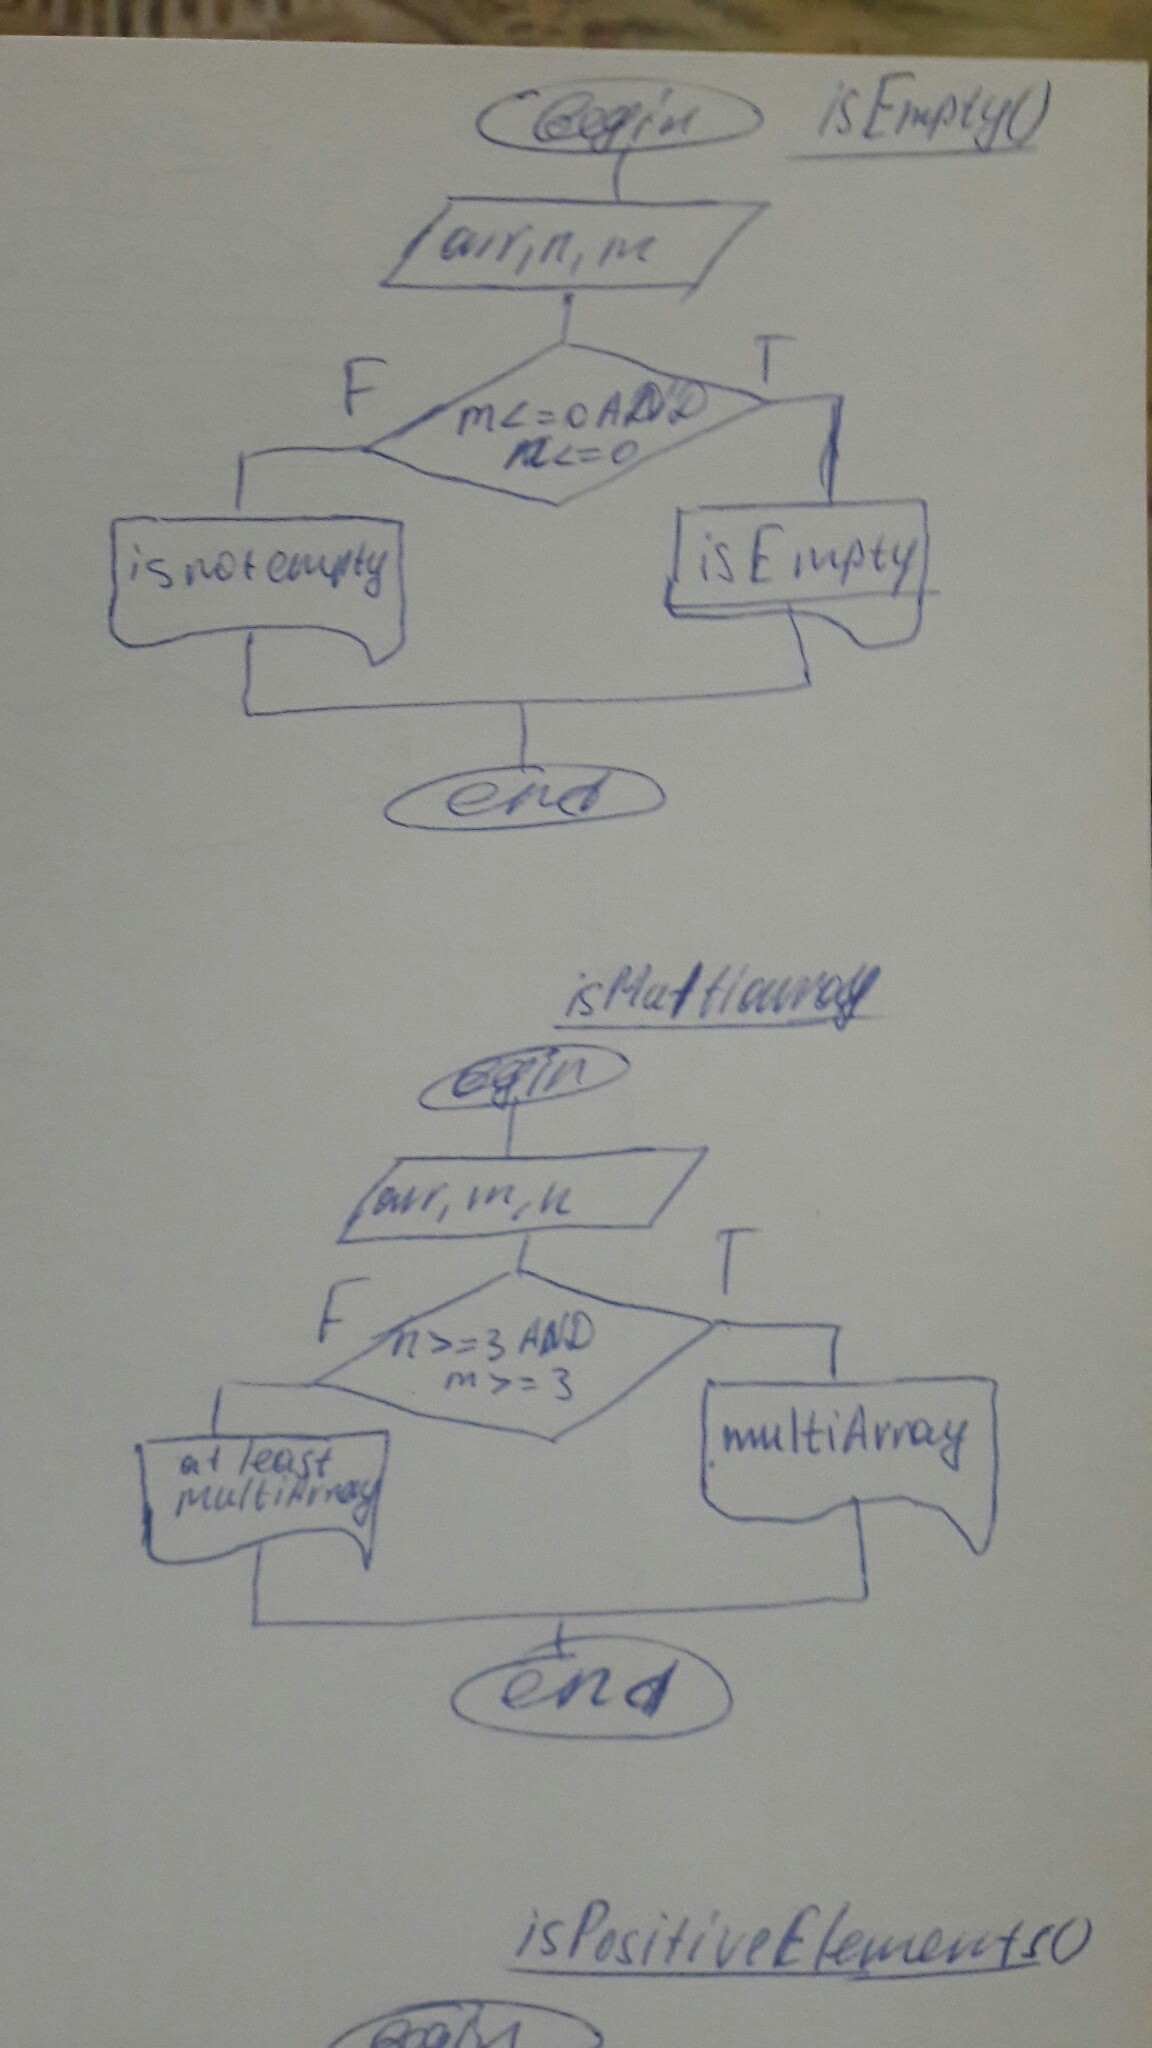 isEmpty()
Begin
arr, n, m
F
T
m<=0 AND
n<=0
is not empty
isEmpty
end
isMultiarray
Begin
arr, m, n
F
T
n>=3 AND
m>=3
at least
multiArray
multiArray
end
isPositiveElements()
Begin